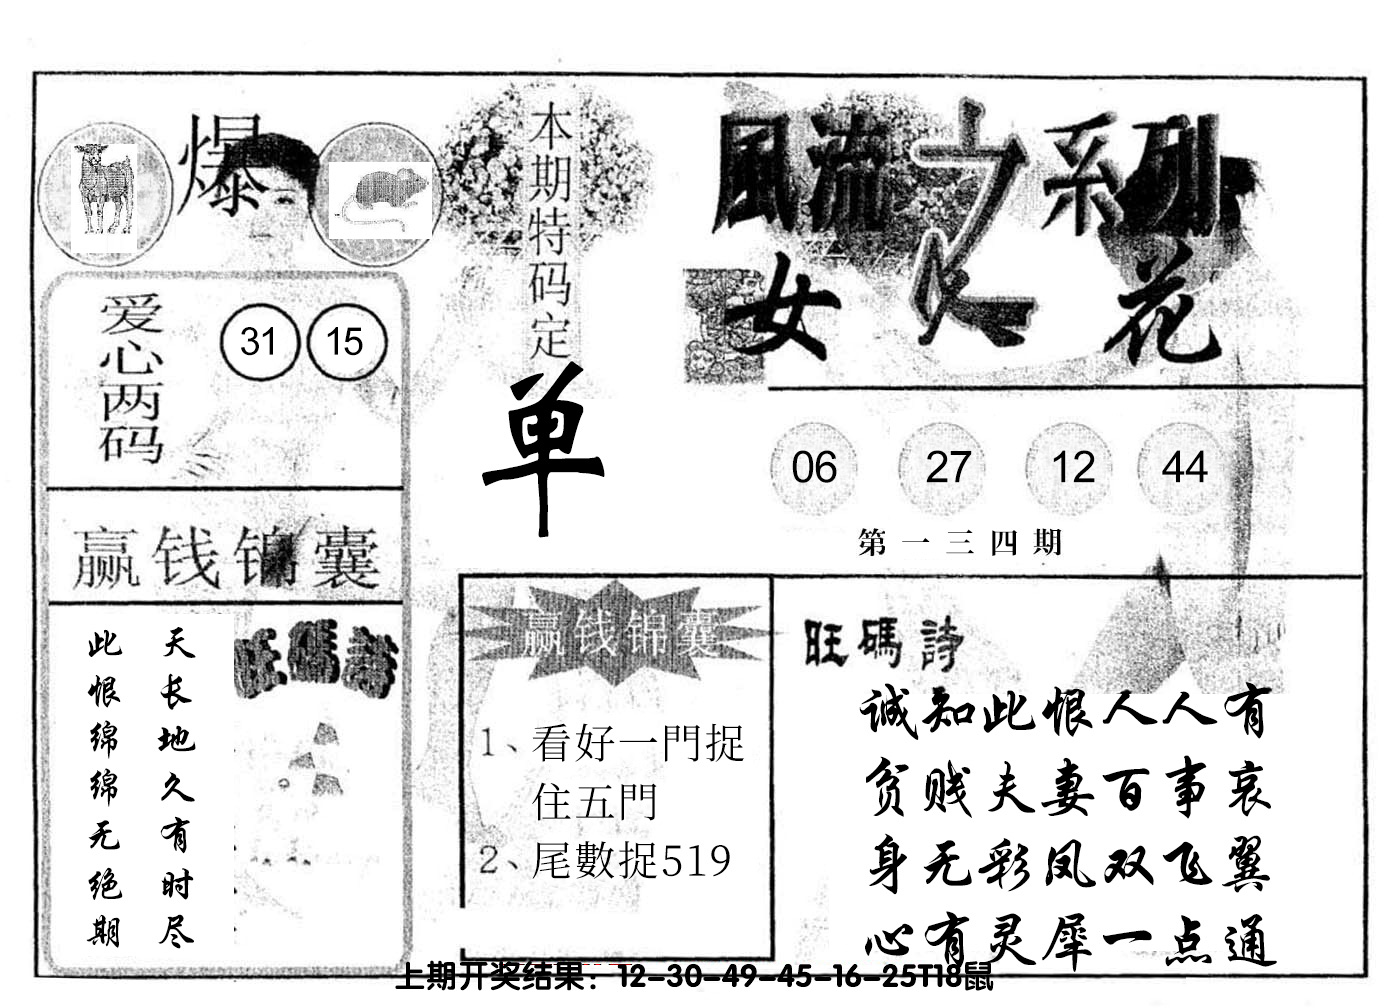 爆
本期特码定
单
風流之系列
女人花
爱心两码
31 15
赢钱锦囊
旺碼詩
天长地久有时尽
此恨绵绵无绝期
06 27 12 44
第一三四期
赢钱锦囊
1、看好一門捉
住五門
2、尾數捉519
旺碼詩
诚知此恨人人有
贫贱夫妻百事哀
身无彩凤双飞翼
心有灵犀一点通
上期开奖结果：12-30-49-45-16-25T18鼠